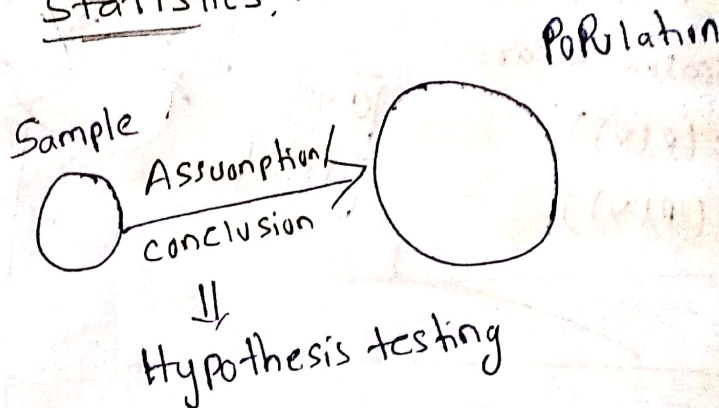 Statistics,
Population
Sample
Assumption/
conclusion
Hypothesis testing